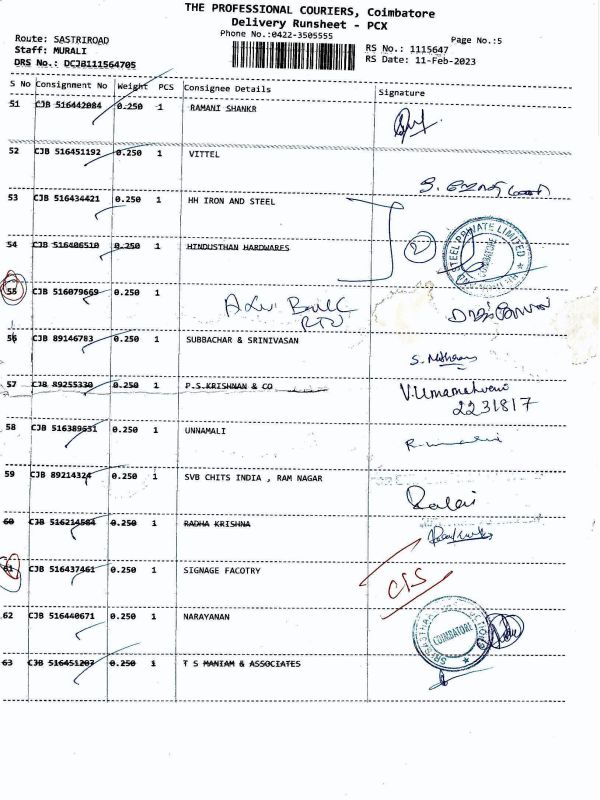 THE PROFESSIONAL COURIERS, Coimbatore
Delivery Runsheet - PCX
Phone No.:0422-3505555
Page No.:5
Route: SASTRIROAD
Staff: MURALI
DRS No.: DCJB111564705
RS No.: 1115647
RS Date: 11-Feb-2023
S No Consignment No Weight PCS Consignee Details Signature
51 CJB 516442084 0.250 1 RAMANI SHANKR
52 CJB 516451192 0.250 1 VITTEL
53 CJB 516434421 0.250 1 HH IRON AND STEEL
54 CJB 516406510 0.250 1 HINDUSTHAN HARDWARES
2
STEEL PRIVATE LIMITED
COIMBATORE
55 CJB 516079669 0.250 1
RTO
56 CJB 89146783 0.250 1 SUBBACHAR & SRINIVASAN
57 CJB 89255330 0.250 1 P.S.KRISHNAN & CO
V.Umamaheswari
2231817
58 CJB 516389631 0.250 1 UNNAMALI
59 CJB 89214324 0.250 1 SVB CHITS INDIA , RAM NAGAR
60 CJB 516214584 0.250 1 RADHA KRISHNA
61 CJB 516437461 0.250 1 SIGNAGE FACOTRY
62 CJB 516440671 0.250 1 NARAYANAN
COIMBATORE
63 CJB 516451207 0.250 1 T S MANIAM & ASSOCIATES